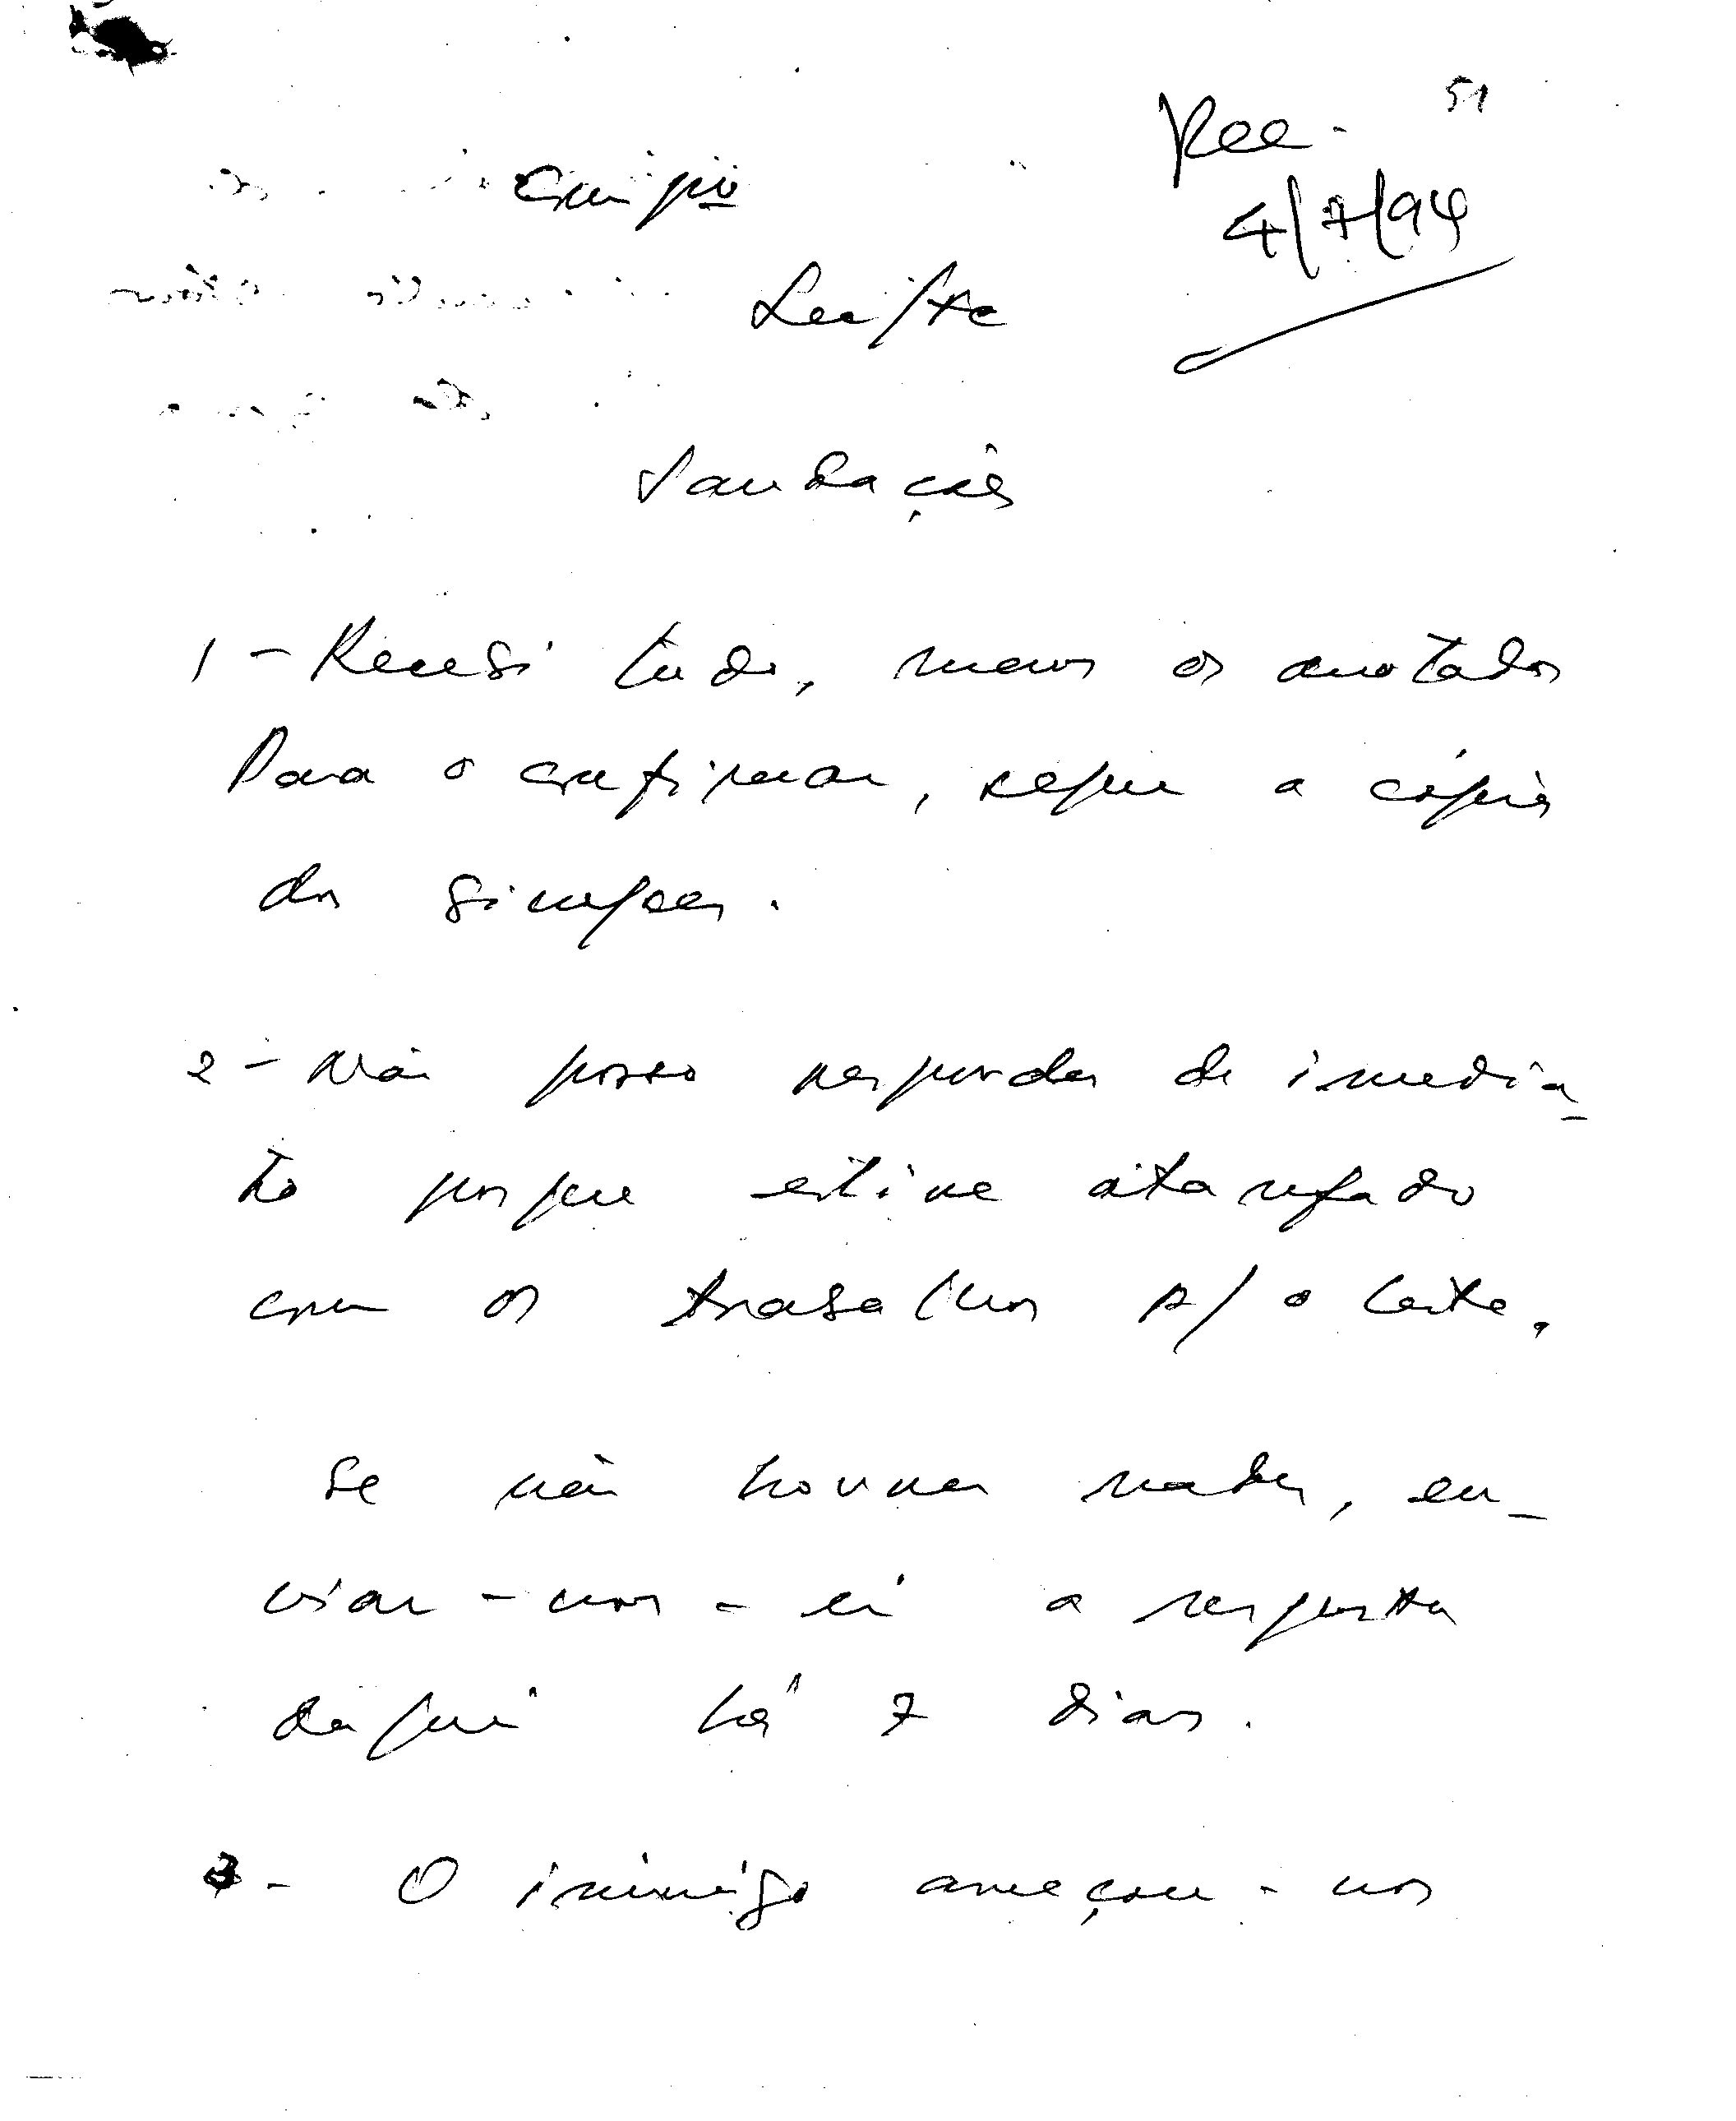 51
Rec.
4/7/94
Compº
Saudações
1 - Recebi tudo, menos os anotados
Para o confirmar, segue a cópia
dos
2 - Não posso responder de imedia_
to porque estive atarefado
com os trabalhos p/ o Leste.
Se não houver nada, en_
viar-vos-ei a resposta
daqui há 7 dias.
3 - O inimigo ameaçou-nos